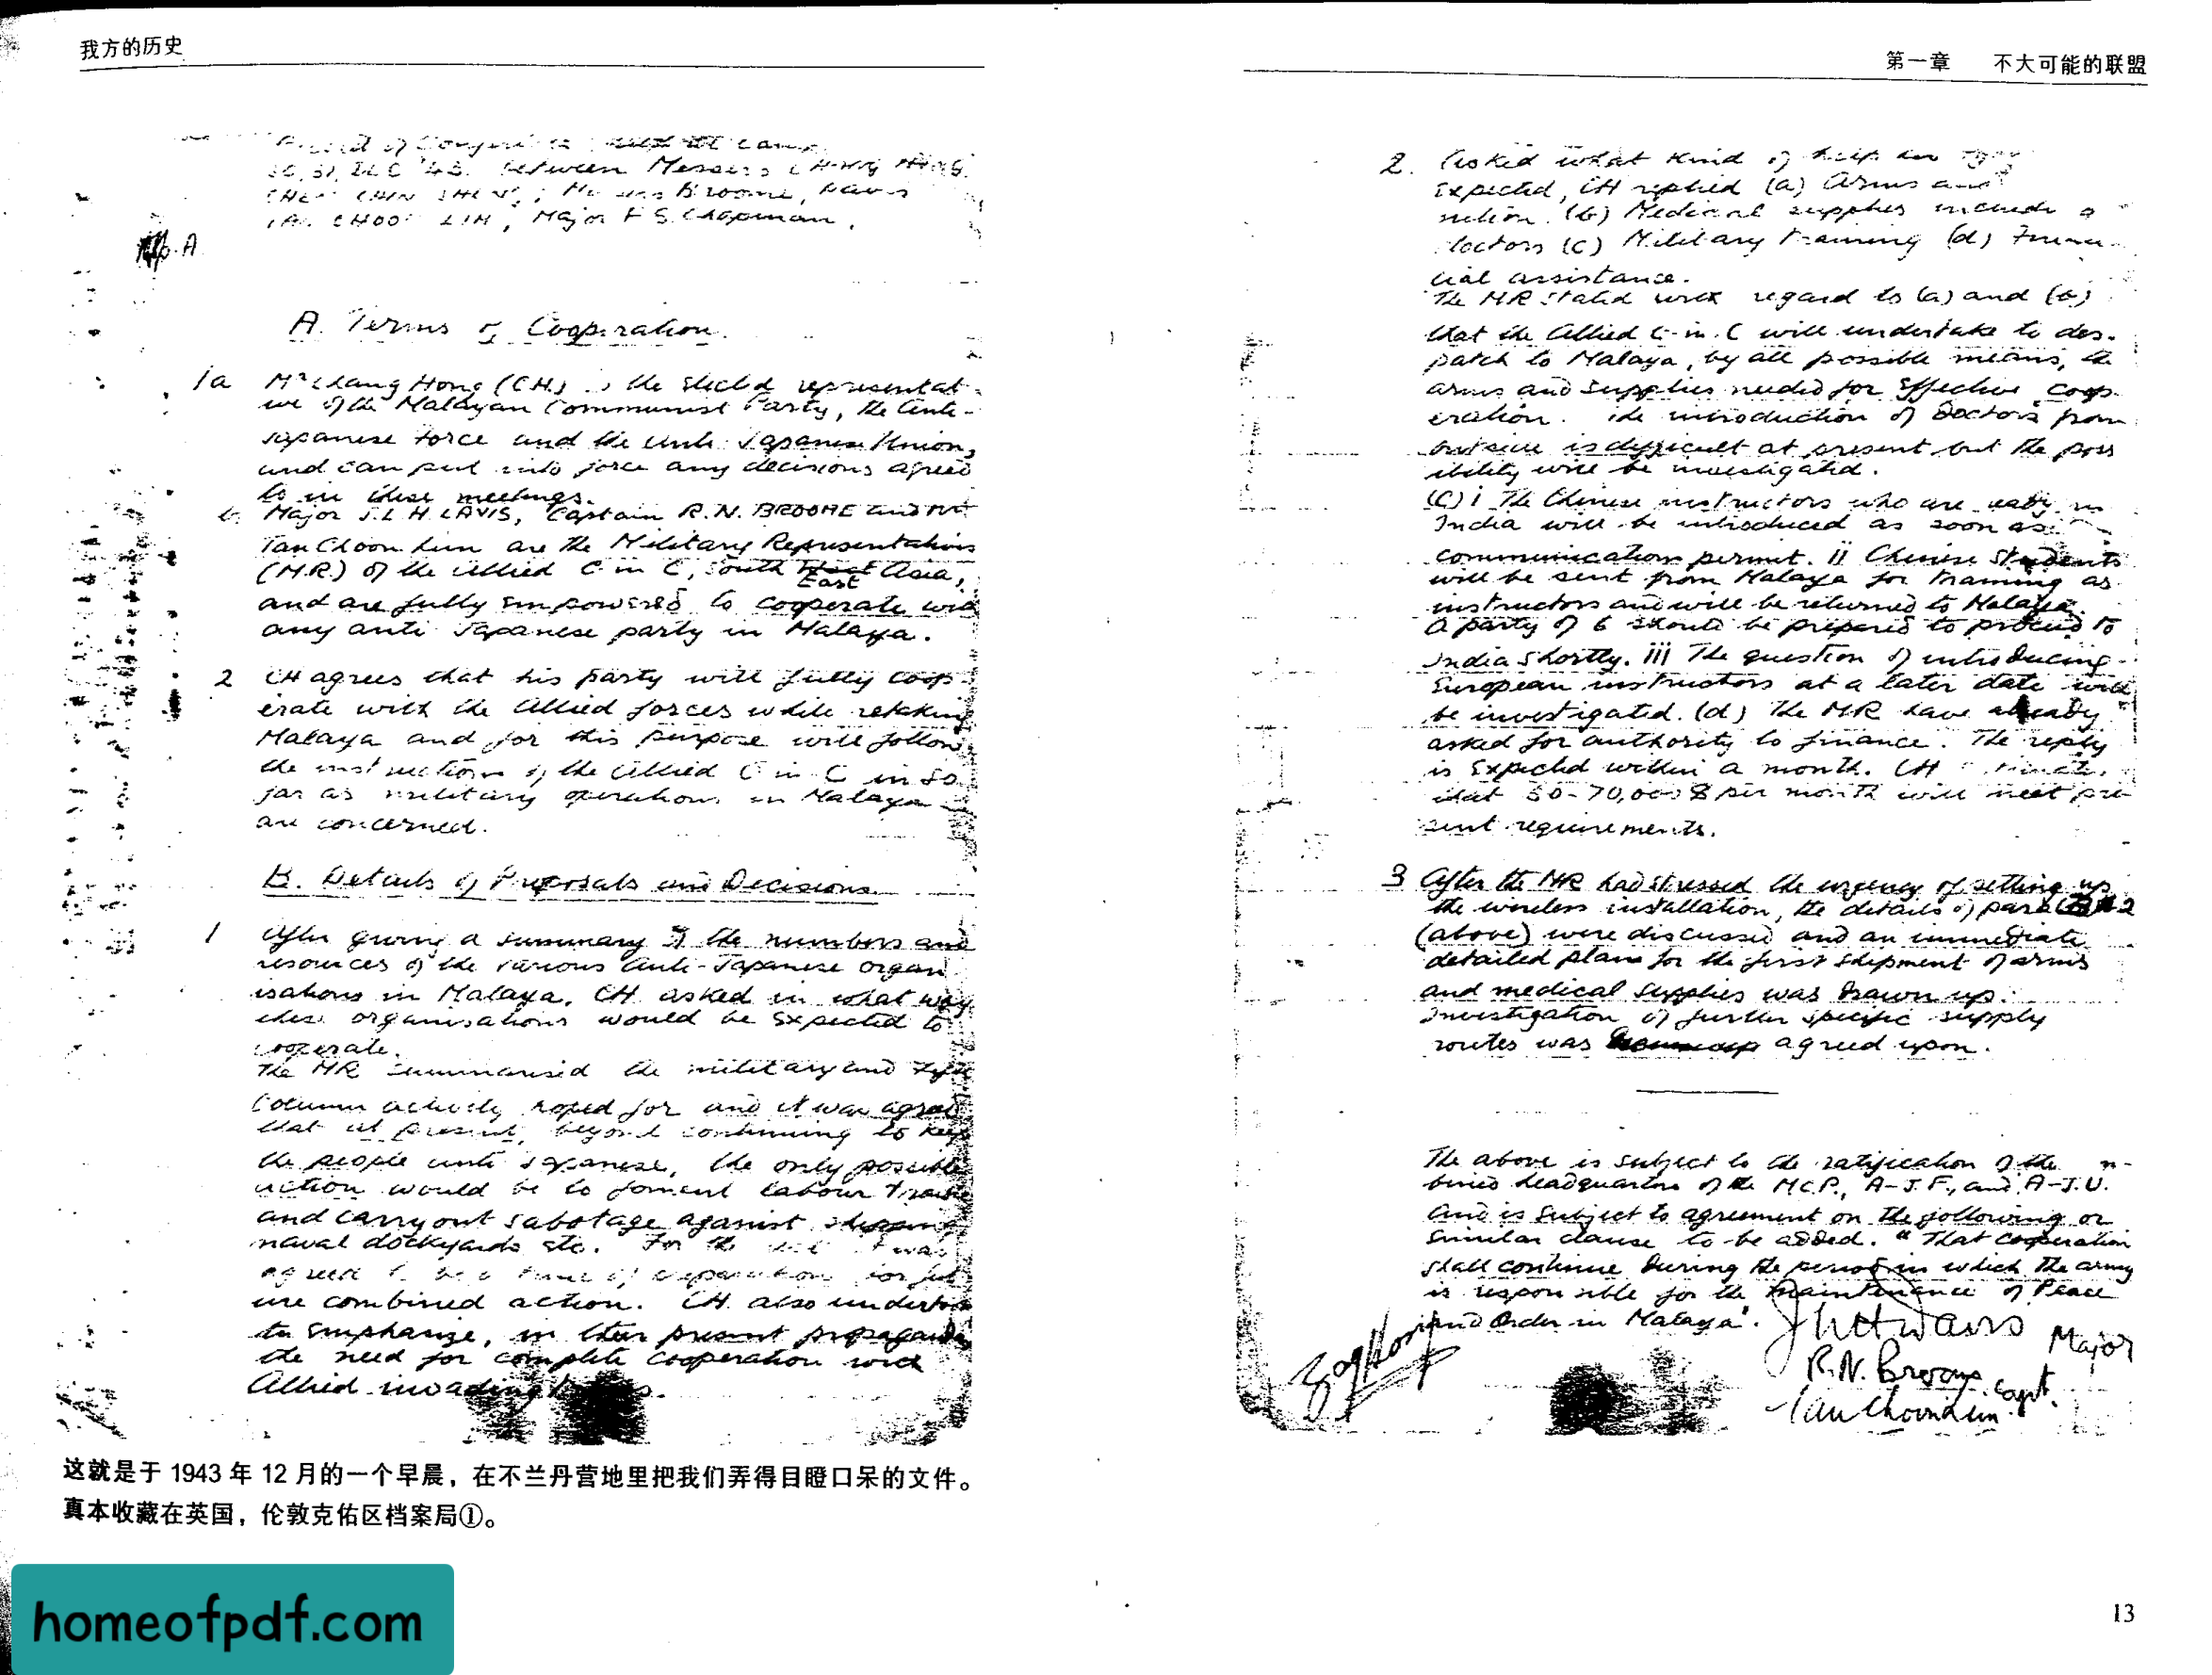 我方的历史
30, 31, DEC '43. between Messers CHANG HONG,
CHEN CHIN SHENG; Broome, Davis
CHOON LIM, Major F. S. Chapman.
App. A
A. Terms of Cooperation.
1a Mr Chang Hong (CH) is the elected representat-
ive of the Malayan Communist Party, the Anti-
Japanese Force and the Anti-Japanese Union,
and can put into force any decisions agreed
to in these meetings.
b. Major J.L.H. DAVIS, Captain R.N. BROOME and Mr
Tan Choon Lim are the Military Representatives
(M.R.) of the Allied C in C, South East Asia,
and are fully empowered to cooperate with
any anti Japanese party in Malaya.
2 CH agrees that his party will fully coop-
erate with the Allied forces while retaking
Malaya and for this purpose will follow
the instructions of the Allied C in C in so
far as military operations in Malaya
are concerned.
B. Details of Proposals and Decisions.
1 After giving a summary of the numbers and
resources of the various Anti-Japanese organ-
isations in Malaya, CH. asked in what way
these organisations would be expected to
cooperate.
The MR summarised the military and fifth
Column activity hoped for and it was agreed
that at present, beyond continuing to keep
the people anti Japanese, the only possible
action would be to foment labour trouble
and carry out sabotage against shipping
naval dockyards etc. For the rest it was
agreed to be a time of preparation for fut-
ure combined action. CH. also undertook
to emphasize, in their present propaganda
the need for complete cooperation with
Allied invading
这就是于 1943 年 12 月的一个早晨，在不兰丹营地里把我们弄得目瞪口呆的文件。
真本收藏在英国，伦敦克佑区档案局①。
homeofpdf.com
第一章 不大可能的联盟
2. Asked what kind of help he
expected, CH replied (a) Arms and
nition. (b) Medical supplies include
doctors (c) Military training (d) Finan-
cial assistance.
The MR stated with regard to (a) and (b)
that the Allied C-in-C will undertake to des-
patch to Malaya, by all possible means, the
arms and supplies needed for effective coop-
eration. The introduction of Doctors from
outside is difficult at present but the poss
ibility will be investigated.
(C) i The Chinese instructors who are ready in
India will be introduced as soon as
communications permit. ii Chinese Students
will be sent from Malaya for training as
instructors and will be returned to Malaya.
A party of 6 should be prepared to proceed to
India shortly. iii The question of introducing
European instructors at a later date will
be investigated. (d) The MR have already
asked for authority to finance. The reply
is expected within a month. CH
that 50-70,000 $ per month will meet pre-
sent requirements.
3 After the MR had stressed the urgency of setting up
the wireless installation, the details of para B 2
(above) were discussed and an immediate
detailed plan for the first shipment of arms
and medical supplies was drawn up.
Investigation of further specific supply
routes was agreed upon.
The above is subject to the ratification of the
bined headquarters of the M.C.P., A-J.F., and A-J.U.
and is subject to agreement on the following or
similar clause to be added. "That cooperation
shall continue during the period in which the army
is responsible for the maintenance of Peace
and Order in Malaya".
JLH Davis Major
R.N. Broome. Capt.
Tan Choon Lim.
13